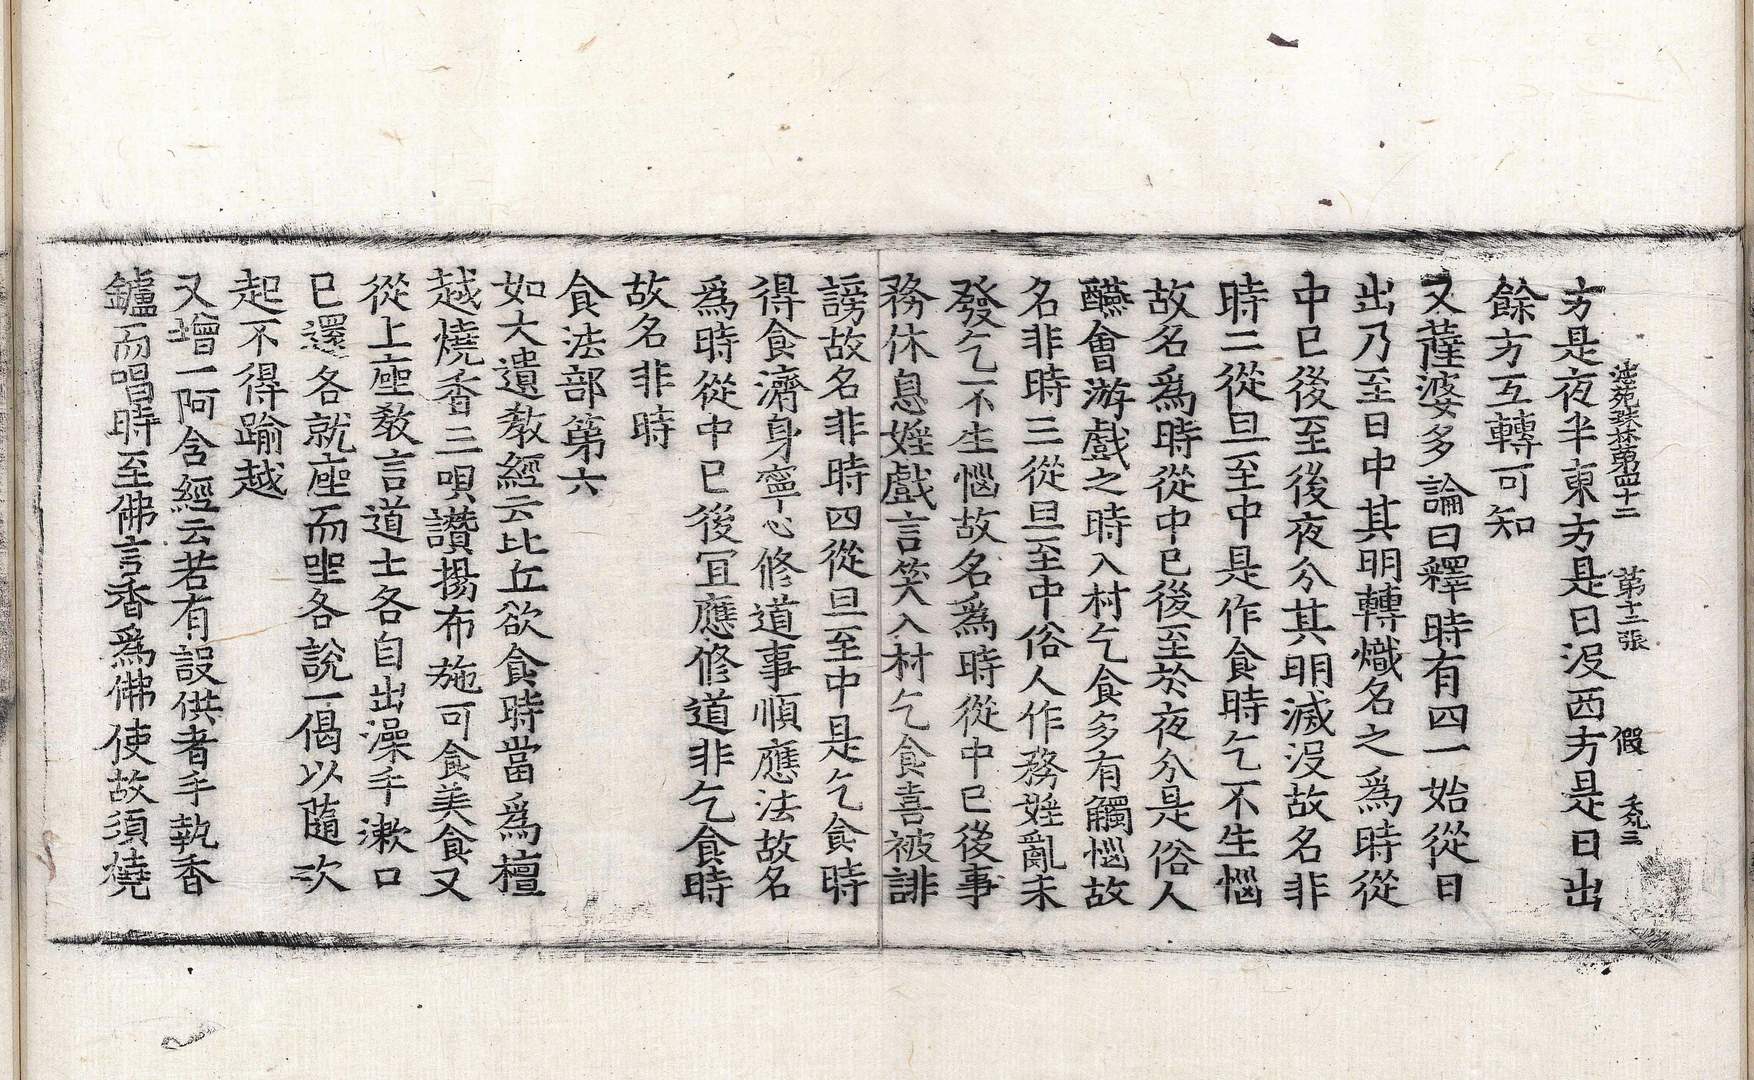 法苑珠林第四十二 第十二張 假
方是夜半東方是日沒西方是日出
餘方互轉可知
又薩婆多論曰釋時有四一始從日
出乃至日中其明轉熾名之爲時從
中已後至後夜分其明滅沒故名非
時二從旦至中是作食時乞不生惱
故名爲時從中已後至於夜分是俗人
醼會游戲之時入村乞食多有觸惱故
名非時三從旦至中俗人作務婬亂未
發乞不生惱故名爲時從中已後事
務休息婬戲言笑入村乞食喜被誹
謗故名非時四從旦至中是乞食時
得食濟身寧心修道事順應法故名
爲時從中已後冝應修道非乞食時
故名非時
食法部第六
如大遺教經云比丘欲食時當爲檀
越燒香三唄讚揚布施可食美食又
從上座教言道士各自出澡手漱口
已還各就座而坐各說一偈以隨次
起不得踰越
又增一阿含經云若有設供者手執香
鑪而唱時至佛言香爲佛使故須燒